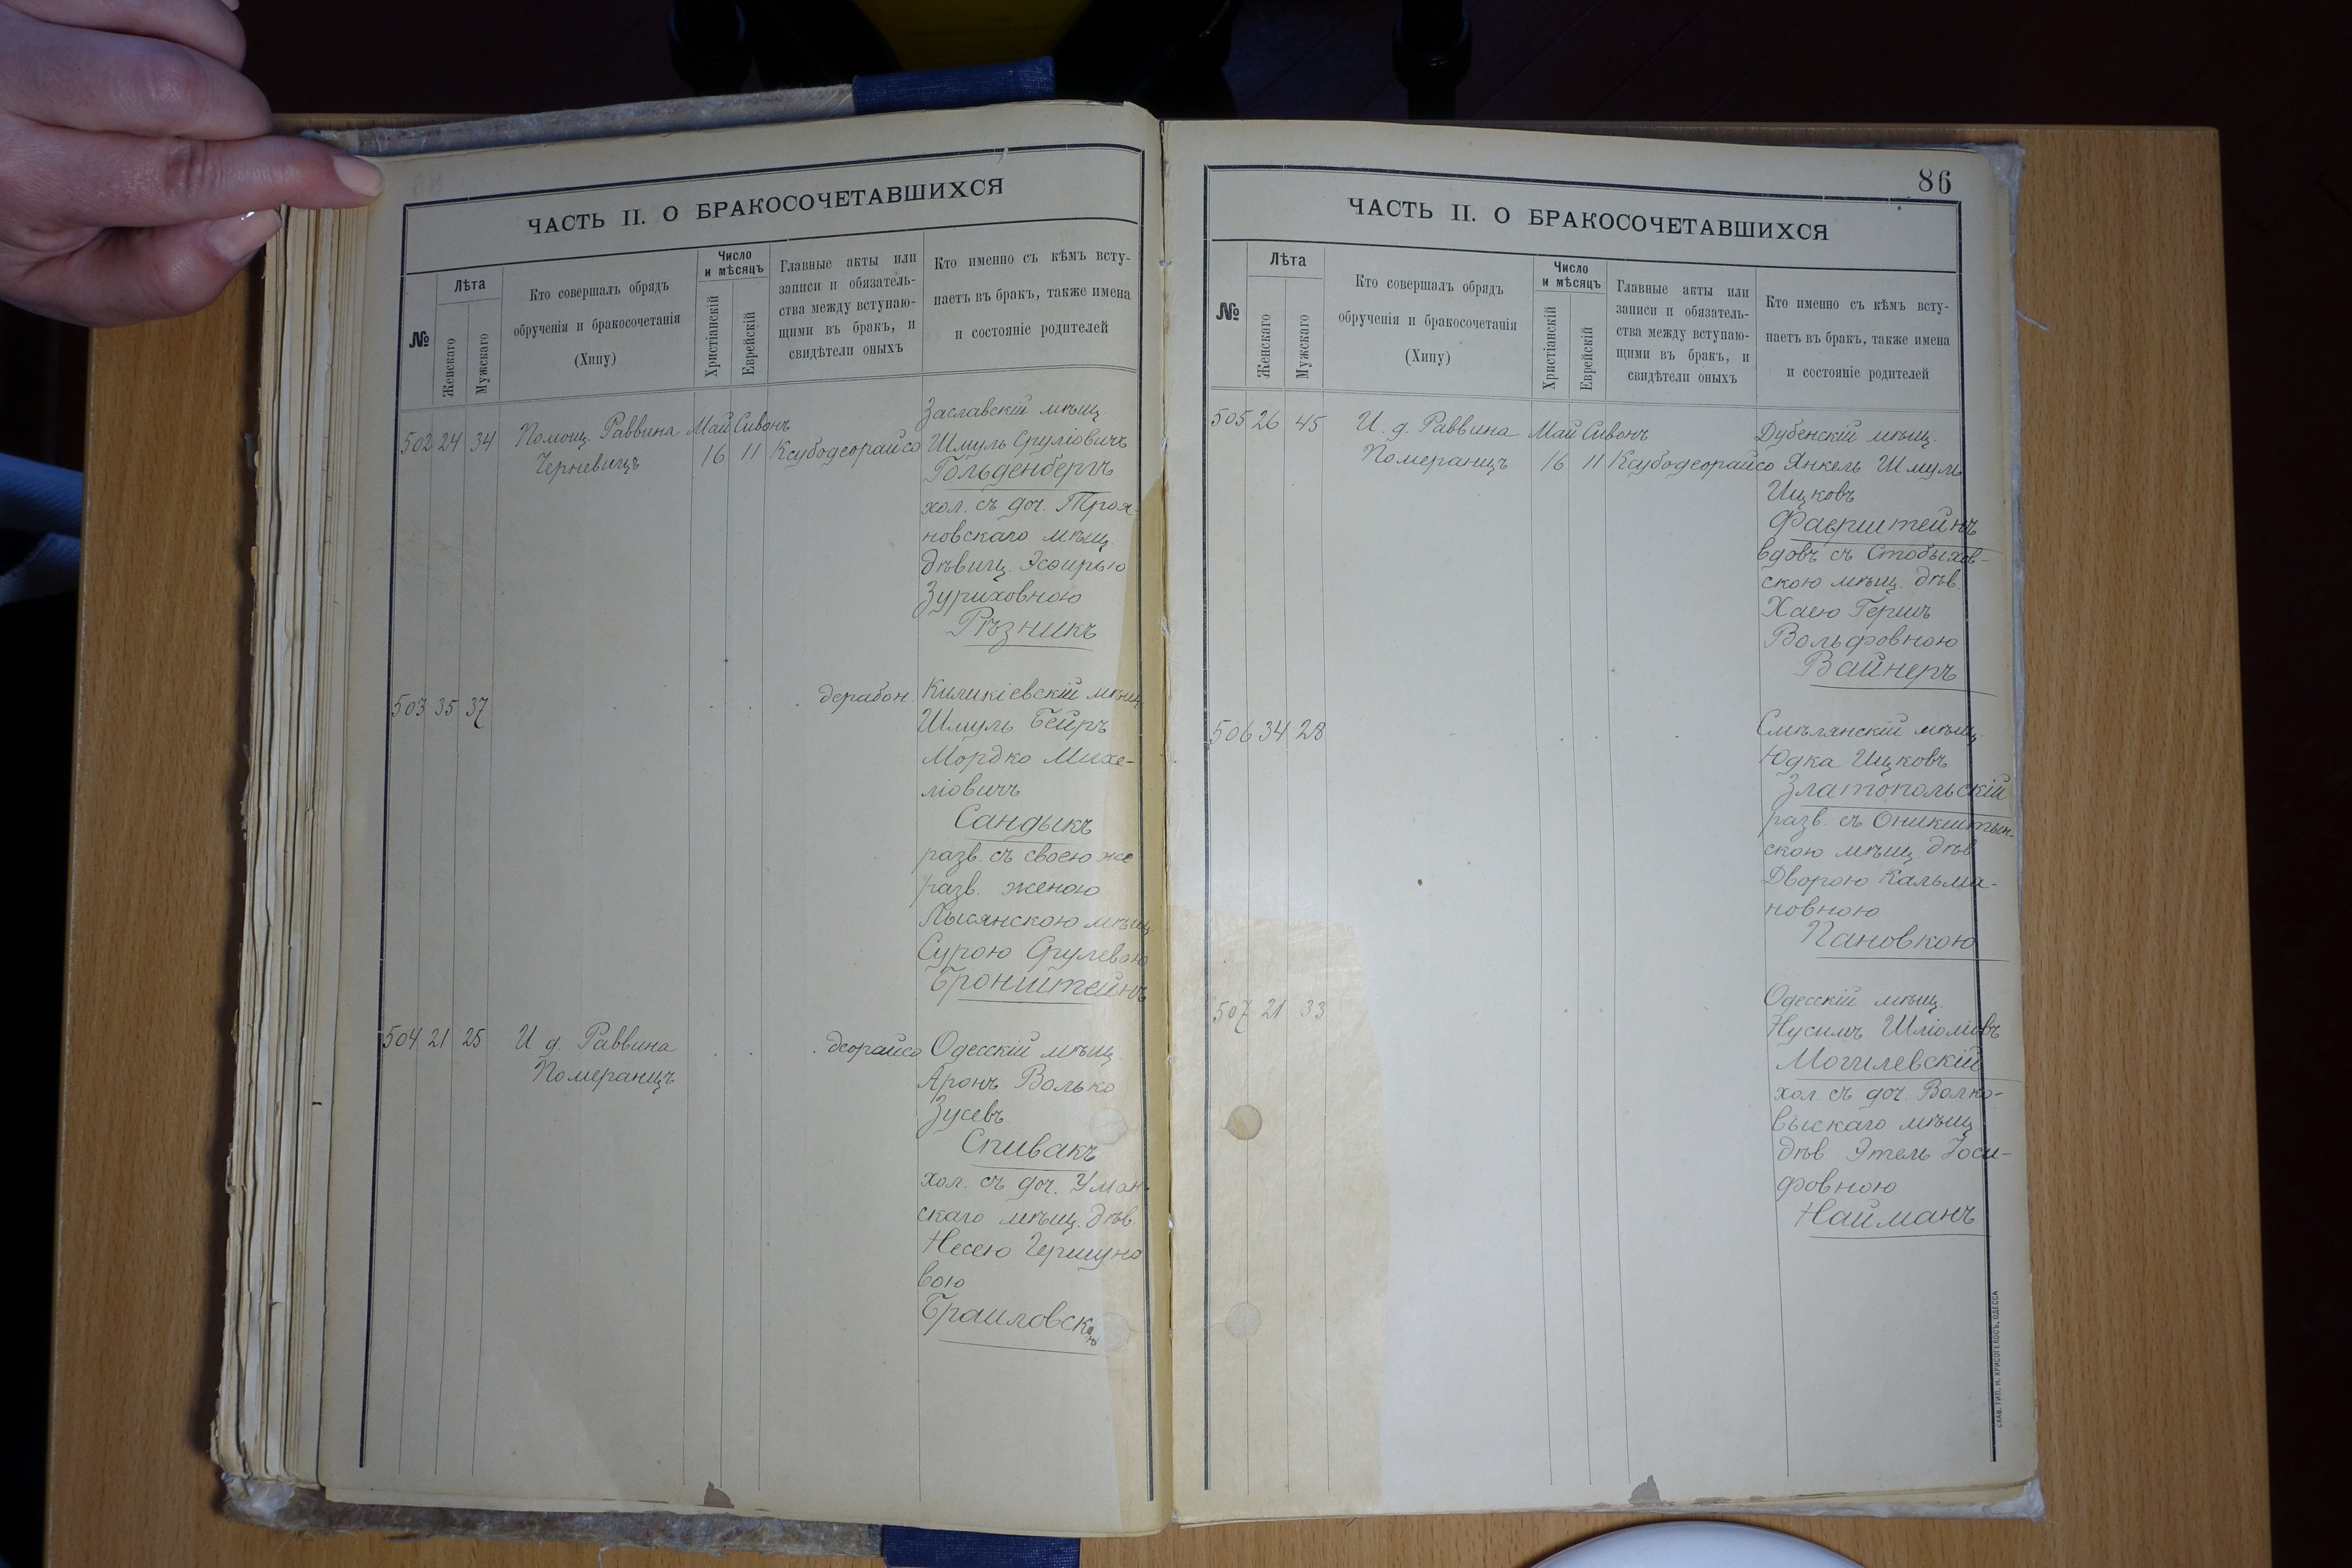 ЧАСТЬ II. О БРАКОСОЧЕТАВШИХСЯ
№
Лѣта
Женскаго
Мужскаго
Кто совершалъ обрядъ
обрученія и бракосочетанія
(Хипу)
Число
и мѣсяцъ
Христіанскій
Еврейскій
Главные акты или
записи и обязатель-
ства между вступаю-
щими въ бракъ, и
свидѣтели оныхъ
Кто именно съ кѣмъ всту-
паетъ въ бракъ, также имена
и состояніе родителей
502 24 34
Помощ. Раввина
Черневицъ
Май Сивонъ
16 11
Ксубодеорайсо
Заславскій мѣщ.
Шмуль Сруліовичъ
Гольденбергъ
хол. съ доч. Троя-
новскаго мѣщ.
дѣвиц. Эсѳирью
Зуриховною
Рѣзникъ
503 35 37
дерабон.
Киликіевскій мѣщ.
Шмуль Бейръ
Мордко Михе-
ліовичъ
Сандыкъ
разв. съ своею же
разв. женою
Лысянскою мѣщ.
Сурою Срулевою
Бронштейнъ
504 21 25
И д Раввина
Померанцъ
деорайсо
Одесскій мѣщ.
Аронъ Волько
Зусевъ
Спивакъ
хол. съ доч. Уман-
скаго мѣщ. дѣв.
Несею Гершуно
вою
Браиловск
86
ЧАСТЬ II. О БРАКОСОЧЕТАВШИХСЯ
№
Лѣта
Женскаго
Мужскаго
Кто совершалъ обрядъ
обрученія и бракосочетанія
(Хипу)
Число
и мѣсяцъ
Христіанскій
Еврейскій
Главные акты или
записи и обязатель-
ства между вступаю-
щими въ бракъ, и
свидѣтели оныхъ
Кто именно съ кѣмъ всту-
паетъ въ бракъ, также имена
и состояніе родителей
505 26 45
И. д. Раввина
Померанцъ
Май Сивонъ
16 11
Ксубодеорайсо
Дубенскій мѣщ.
Янкель Шмуль
Ицковъ
Фаерштейнъ
вдовъ съ Стобыхов-
скою мѣщ. дѣв.
Хаею Гершъ
Вольфовною
Вайнеръ
506 34 28
Смѣлянскій мѣщ.
Юдка Ицковъ
Златопольскій
разв. съ Оникштын-
скою мѣщ. дѣв
Дворою Кальма-
новною
Пановкою
507 21 33
Одесскій мѣщ.
Нусимъ Шліомовъ
Могилевскій
хол. съ доч. Волко-
выскаго мѣщ
дѣв. Этель Іоси-
фовною
Найманъ
СЛАВ. ТИП. Н. ХРИСОГЕЛОСЪ, ОДЕССА